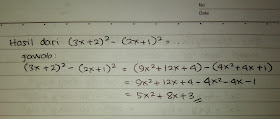 No
Date
Hasil dari (3x+2)² - (2x+1)² = ...
jawab:
(3x+2)² - (2x+1)² = (9x²+12x+4) - (4x²+4x+1)
= 9x²+12x+4 - 4x² - 4x - 1
= 5x² + 8x + 3